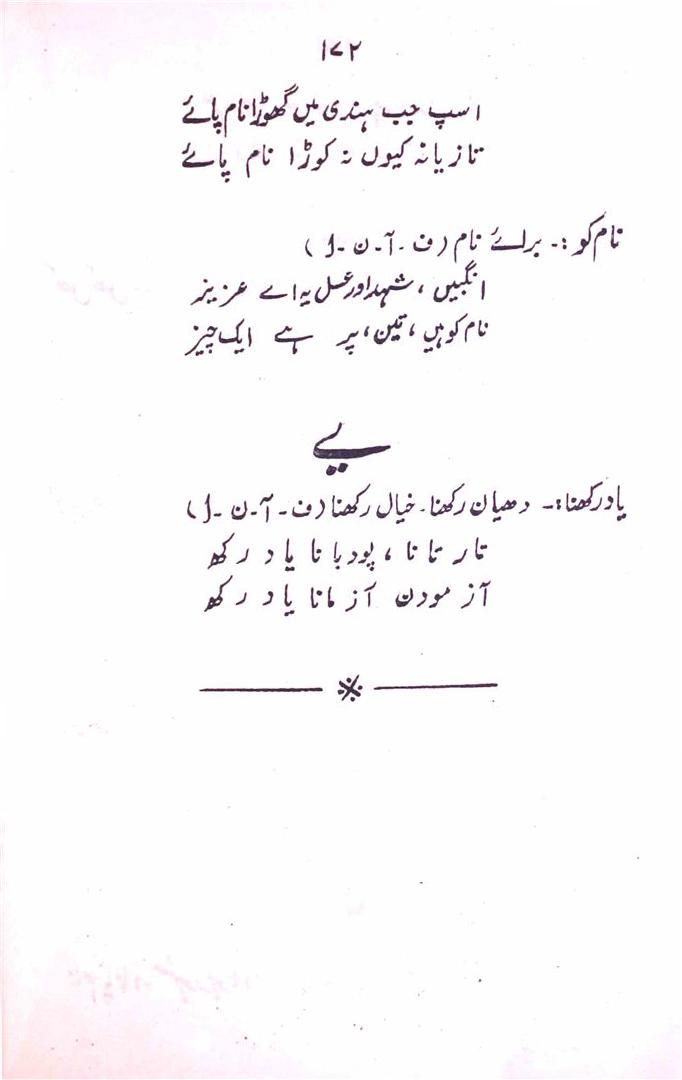 ۱۷۲
اسپ جب ہندی میں گھوڑا نام پائے
تازیانہ کیوں نہ کوڑا نام پائے
نام کو :۔ برائے نام (ف ۔ آ ۔ ن ۔ ا)
انگبیں ، شہد اور عسل یہ اے عزیز
نام کو ہیں ، تین ، پر ہے ایک چیز
یے
یاد رکھنا :۔ دھیان رکھنا ۔ خیال رکھنا (ف ۔ آ ۔ ن ۔ ا)
تار تانا ، پود بانا یاد رکھ
آزمودن آزمانا یاد رکھ